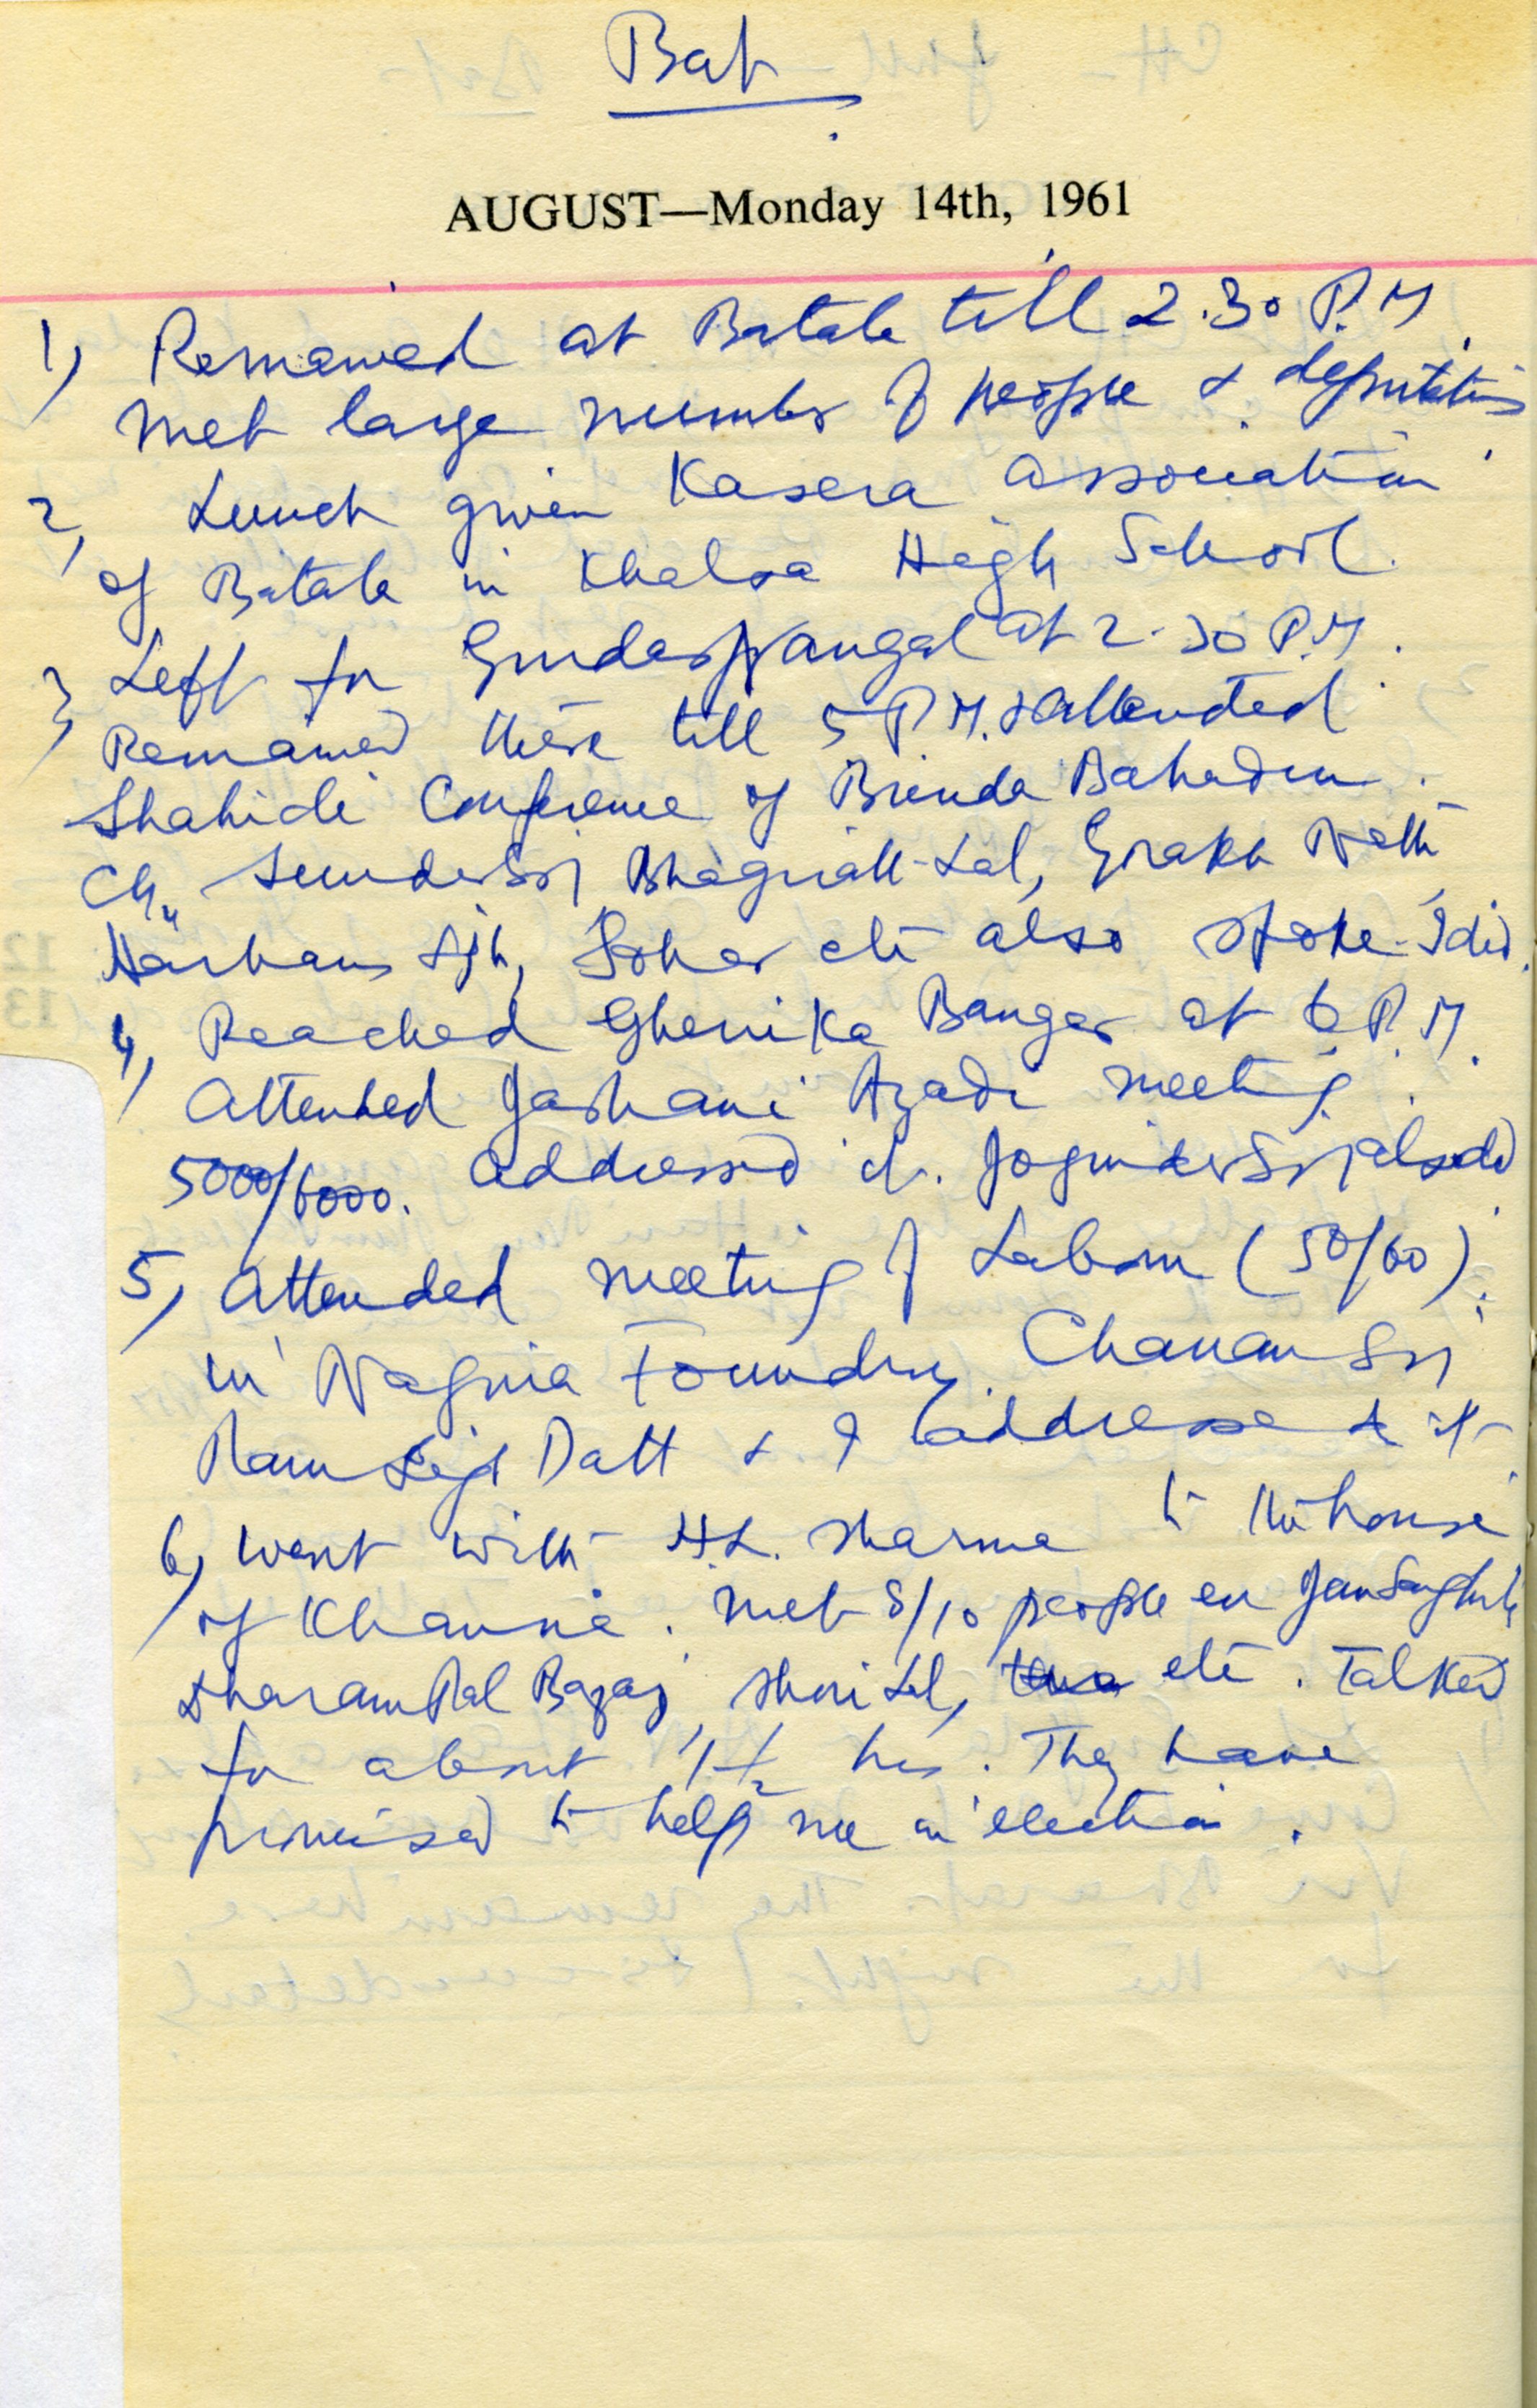 Bat
AUGUST—Monday 14th, 1961
1) Remained at Batala till 2.30 P.M.
Met large number of people & deputations.
2) Lunch given Kasera Association
of Batala in Khalsa High School.
3) Left for at 2.30 P.M.
Remained there till 5 P.M. & attended
Shahidi Conference of Banda Bahadur.
Ch. Sunder Bhagwati Lal, Gorakh Nath
Harbans etc also spoke. I did.
4) Reached Gheni Ka Bangar at 6 P.M.
Attended Jashani Azadi meeting.
5000/6000. Addressed it. Joginder also did
5) Attended meeting of Labour (50/60)
in Nagina Foundry. Chanan
Ram Datt & I addressed it
6) Went with H.L. Sharma to the house
of Khanna. Met 8/10 people
Dharam Pal Bazaz, Shori Lal, etc. Talked
for about 1½ hrs. They have
promised to help me in election.